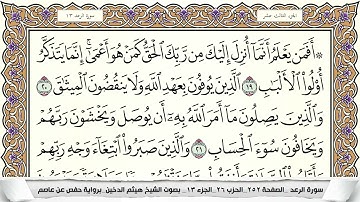 الجزء الثالث عشر
سورة الرعد ١٣
أَفَمَن يَعْلَمُ أَنَّمَآ أُنزِلَ إِلَيْكَ مِن رَّبِّكَ ٱلْحَقُّ كَمَنْ هُوَ أَعْمَىٰٓ ۚ إِنَّمَا يَتَذَكَّرُ
أُو۟لُوا۟ ٱلْأَلْبَٰبِ ١٩ ٱلَّذِينَ يُوفُونَ بِعَهْدِ ٱللَّهِ وَلَا يَنقُضُونَ ٱلْمِيثَٰقَ ٢٠
وَٱلَّذِينَ يَصِلُونَ مَآ أَمَرَ ٱللَّهُ بِهِۦٓ أَن يُوصَلَ وَيَخْشَوْنَ رَبَّهُمْ
وَيَخَافُونَ سُوٓءَ ٱلْحِسَابِ ٢١ وَٱلَّذِينَ صَبَرُوا۟ ٱبْتِغَآءَ وَجْهِ رَبِّهِمْ
سورة الرعد_الصفحة ٢٥٢_الحزب ٢٦_الجزء ١٣_ بصوت الشيخ هيثم الدخين_برواية حفص عن عاصم